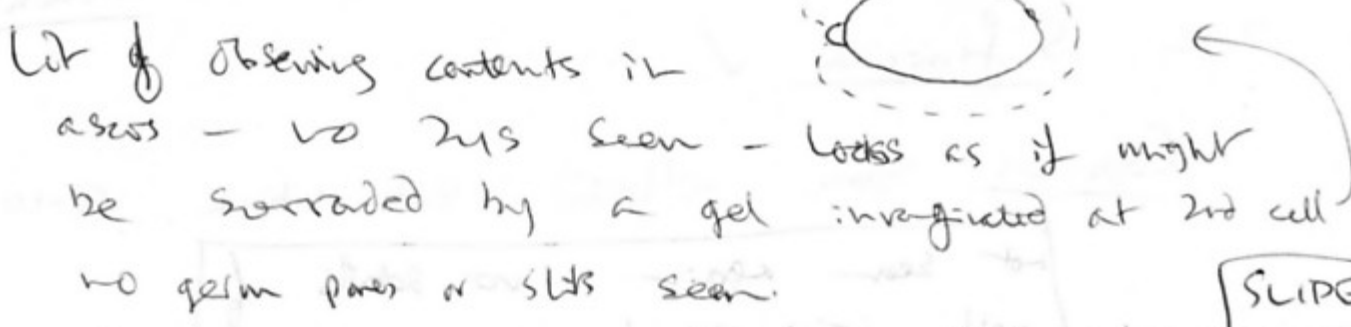 Lot of observing contents in
ascus - no 2ys seen - looks as if might
be surrounded by a gel invaginated at 2nd cell
no germ pores or slits seen.
SLIDE